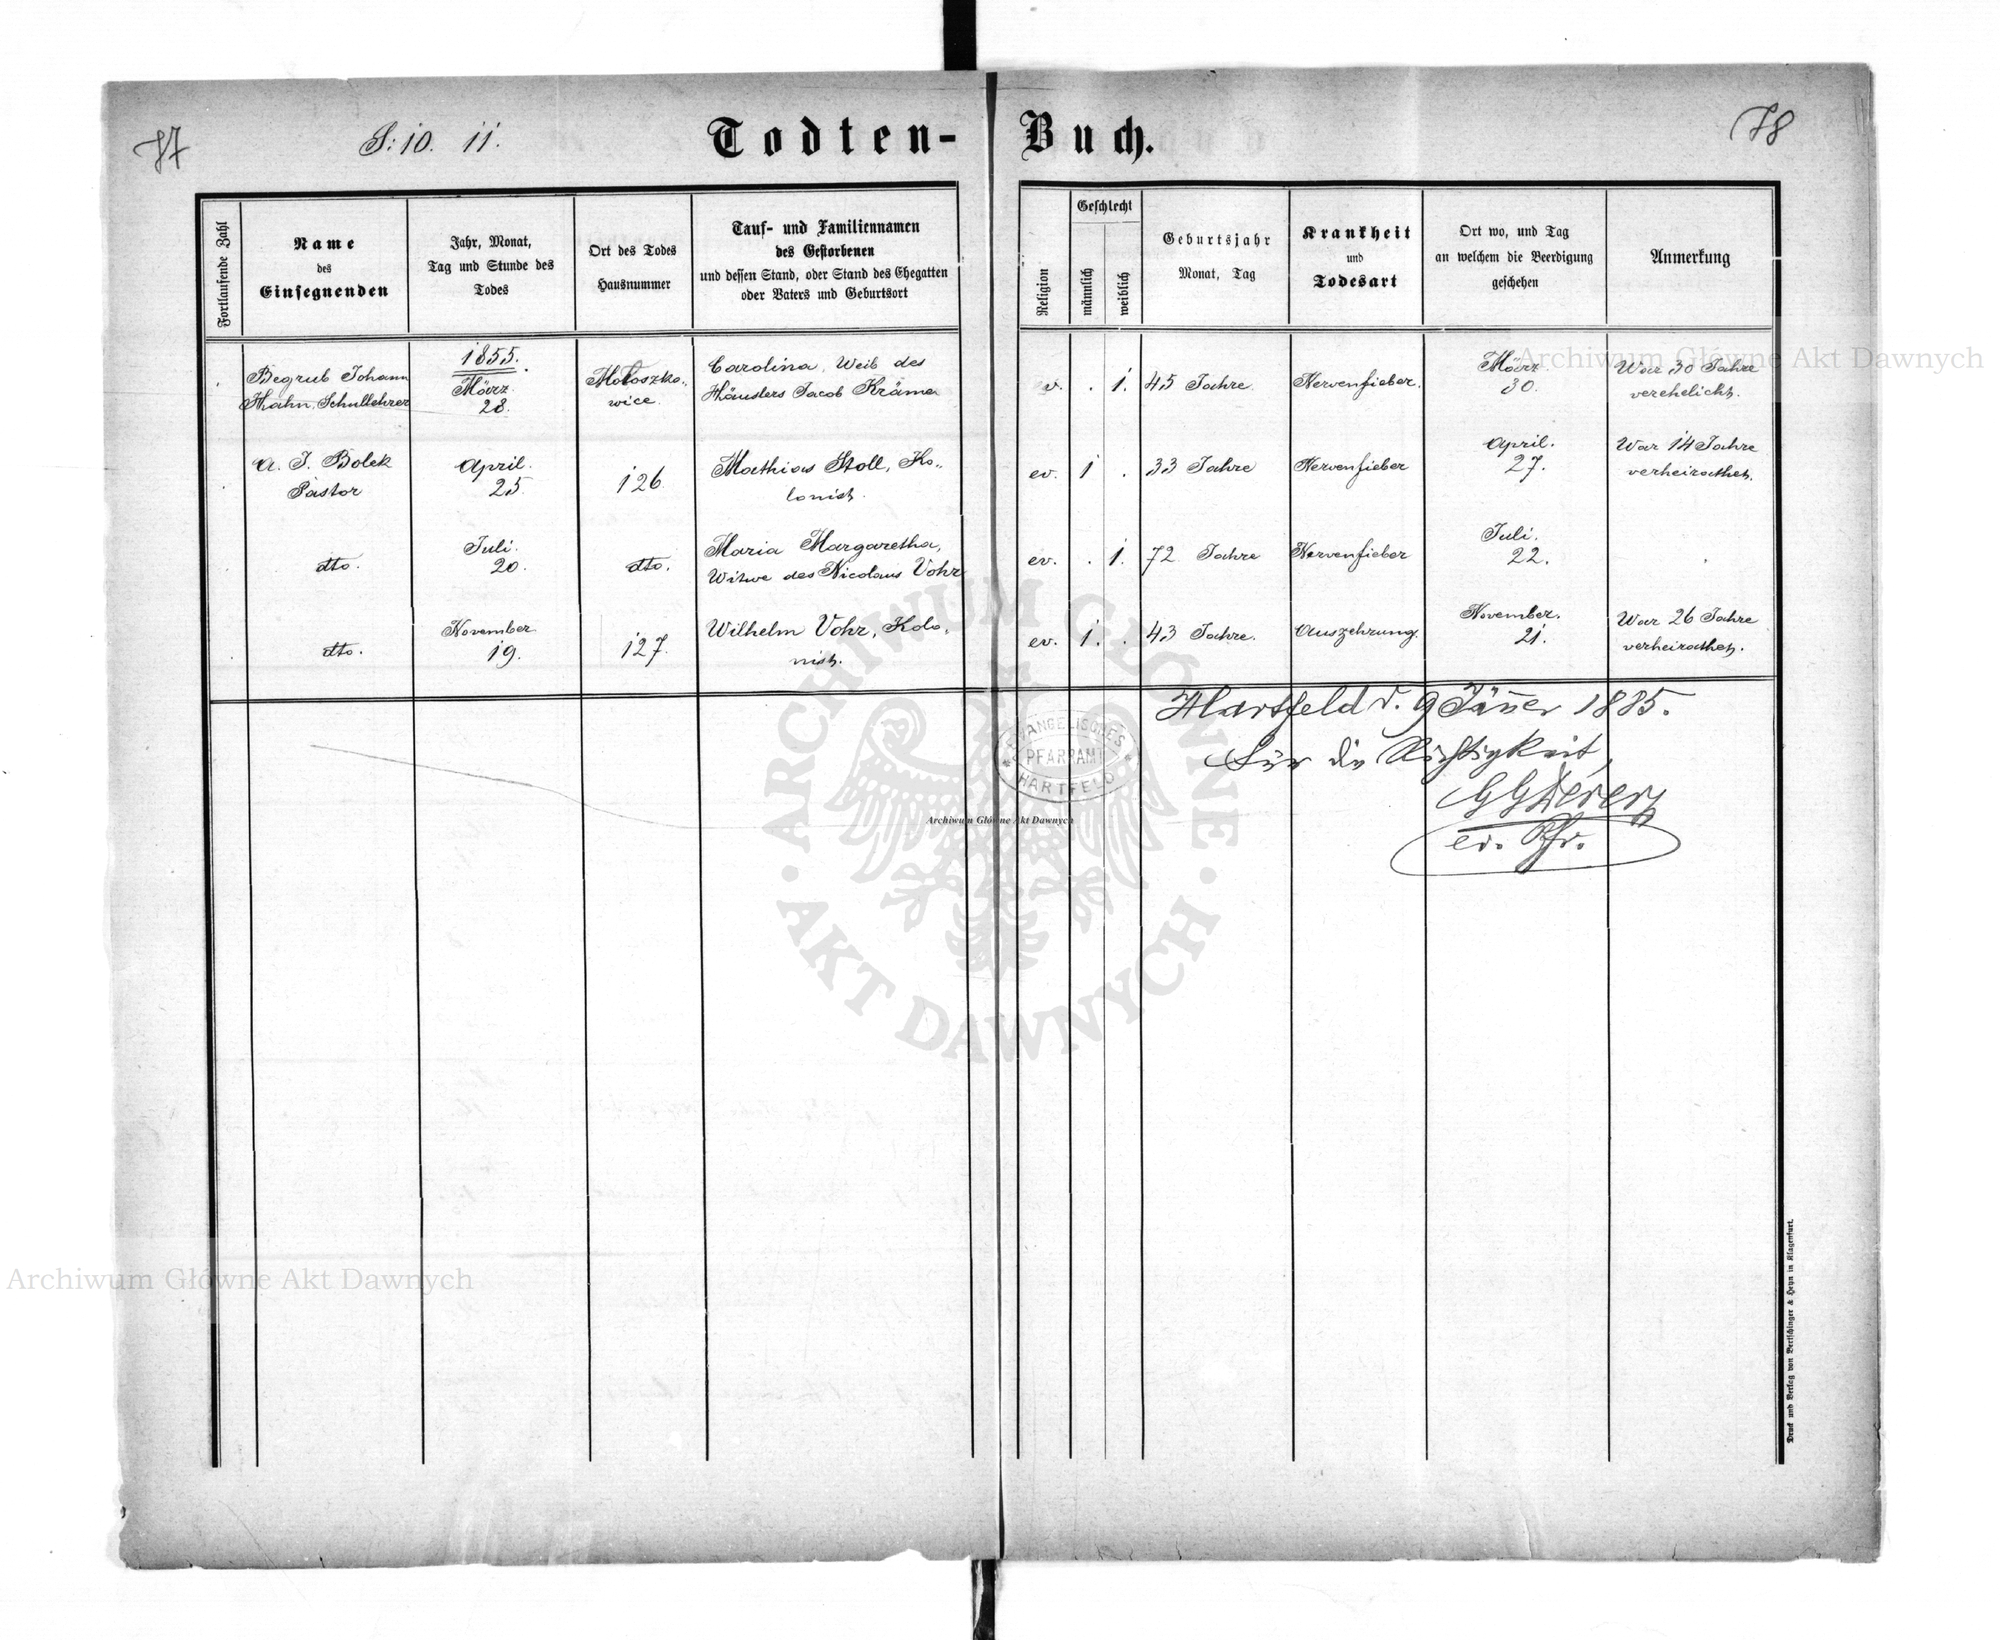 77
S: 10. 11.
Todten-Buch.
78
Fortlaufende Zahl
Name
des
Einsegnenden
Jahr, Monat,
Tag und Stunde des
Todes
Ort des Todes
Hausnummer
Tauf- und Familiennamen
des Gestorbenen
und dessen Stand, oder Stand des Ehegatten
oder Vaters und Geburtsort
Religion
Geschlecht
männlich
weiblich
Geburtsjahr
Monat, Tag
Krankheit
und
Todesart
Ort wo, und Tag
an welchem die Beerdigung
geschehen
Anmerkung
Begrub Johann
Hahn, Schullehrer
1855.
März
28.
Mołoszko-
wice
Carolina, Weib des
Häuslers Jacob Krämer
ev. . 1. 45 Jahre Nervenfieber.
März
30.
War 30 Jahre
verehelicht.
A. J. Bolek
Pastor
April.
25.
126.
Mathias Stoll, Ko-
lonist.
ev. 1 . 33 Jahre Nervenfieber
April.
27.
War 14 Jahre
verheirathet.
dto.
Juli.
20.
dto.
Maria Margaretha,
Witwe des Nicolaus Vohr
ev. . 1. 72 Jahre Nervenfieber
Juli.
22.
dto.
November
19.
127.
Wilhelm Vohr, Kolo-
nist.
ev. 1. . 43 Jahre. Auszehrung.
November.
21.
War 26 Jahre
verheirathet.
Hartfeld d. 9 Jänner 1885.
Für die Richtigkeit,
ev. Pfr.
EVANGELISCHES
PFARRAMT
HARTFELD
Archiwum Główne Akt Dawnych
Archiwum Główne Akt Dawnych
Archiwum Główne Akt Dawnych
ARCHIWUM GŁÓWNE
AKT DAWNYCH
Druck und Verlag von Bertschinger & Heyn in Klagenfurt.